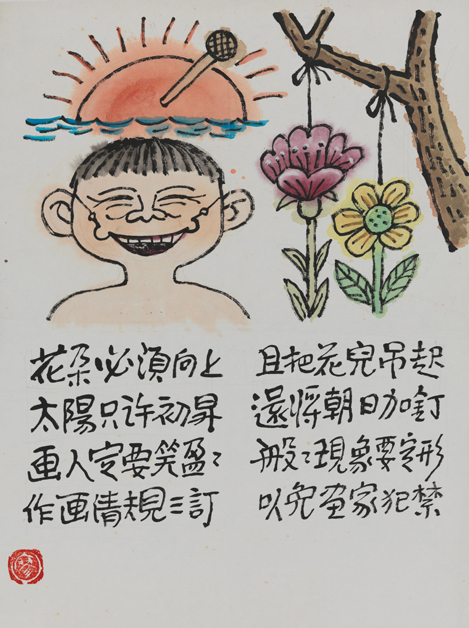 花朵必須向上
太陽只许初昇
画人定要笑盈〻
作画清規三訂
且把花兒吊起
還將朝日加釘
般〻現象要定形
以免画家犯禁